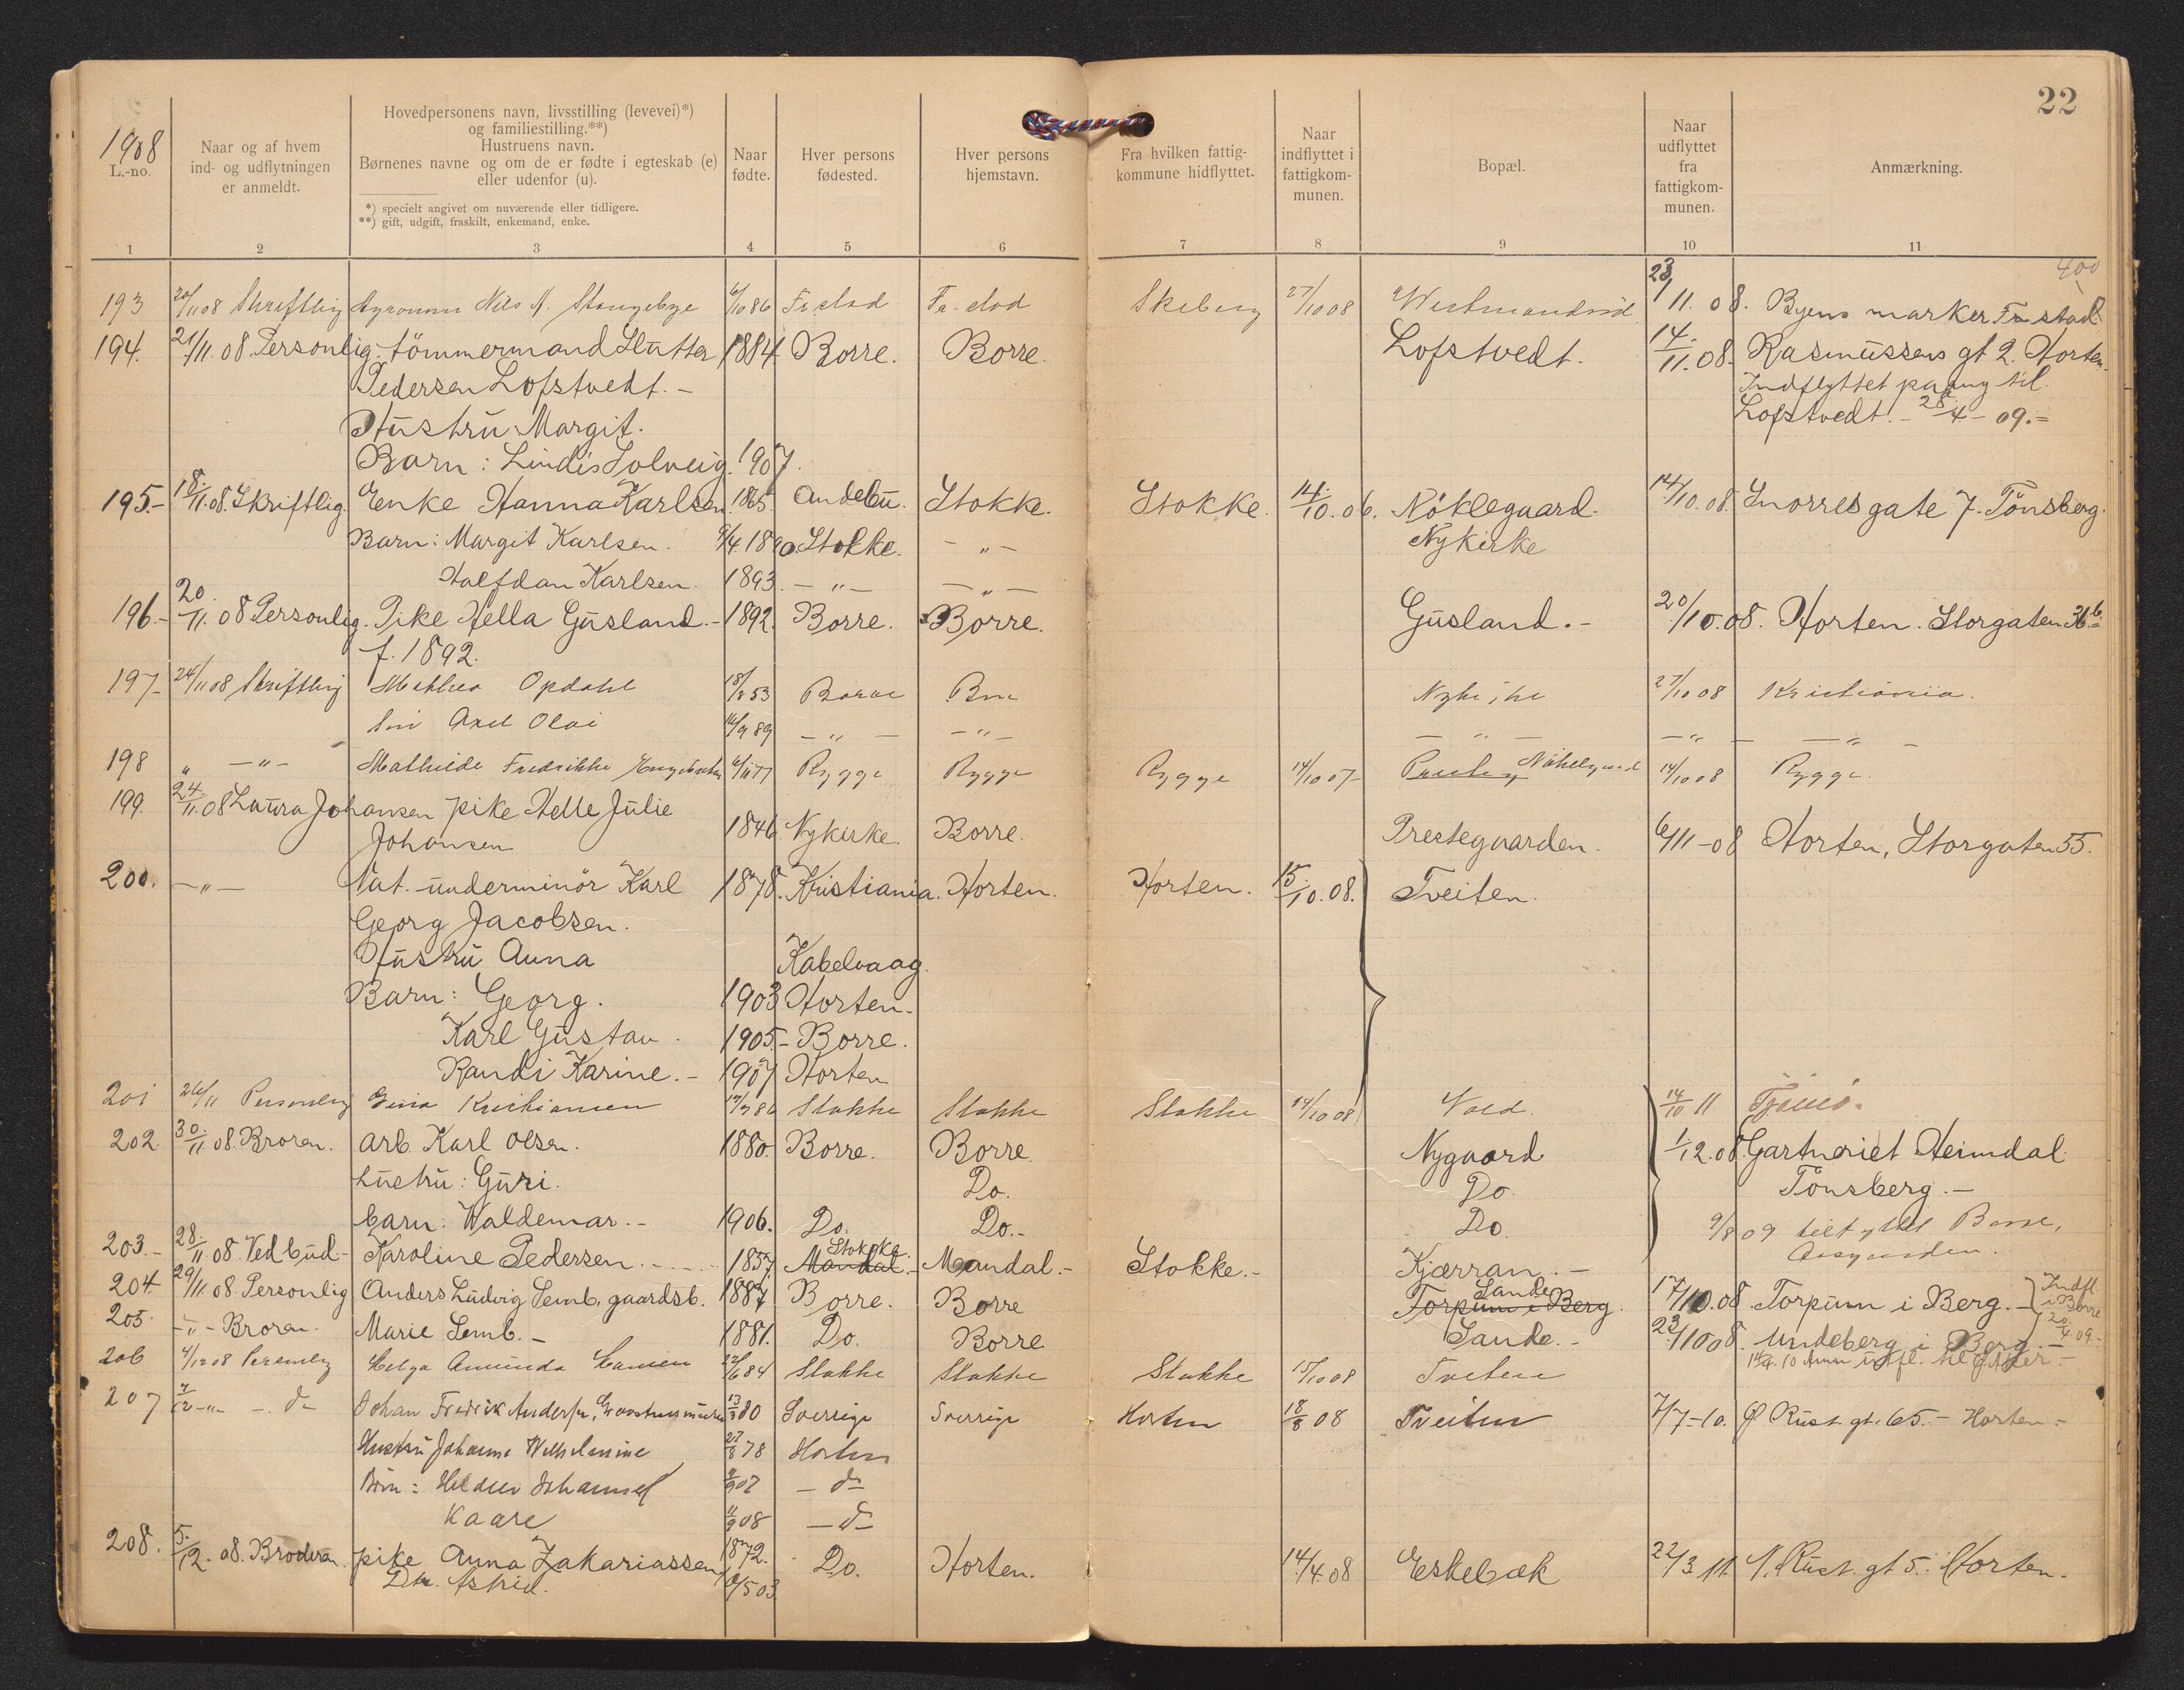 22
1908
L.-no.
Naar og af hvem
ind- og udflytningen
er anmeldt.
Hovedpersonens navn, livsstilling (levevei)*)
og familiestilling.**)
Hustruens navn.
Børnenes navne og om de er fødte i egteskab (e)
eller udenfor (u).
*) specielt angivet om nuværende eller tidligere.
**) gift, udgift, fraskilt, enkemand, enke.
Naar
fødte.
Hver persons
fødested.
Hver persons
hjemstavn.
Fra hvilken fattig-
kommune hidflyttet.
Naar
indflyttet i
fattigkom-
munen.
Bopæl.
Naar
udflyttet
fra
fattigkom-
munen.
Anmærkning.
1 2 3 4 5 6 7 8 9 10 11
400
193 20/11 08 Skriftlig Agronom Nils A. Stangebye 6/10 86 Fr.stad Fr.stad Skeberg 27/10 08 23/11. 08. Byens marker Frstad
194. 21/11. 08 Personlig. tömmermand Hutter 1884. Borre. Borre. Lofstvedt. 14./11. 08. Rasmussens gt 2. Horten.
Pedersen Lofstvedt. - Indflyttet paa ny til
Hustru: Margit. Lofstvedt. - 28/4 - 09. =
Barn: Lindis Solveig. 1907.
195.- 18./11. 08. Skriftlig. Enke Hanna Karlsen. 1865. Andebu. Stokke. Stokke. 14./10. 06. Nöklegaard. 14/10. 08. Snorres gate 7. Tönsberg.
Barn: Margit Karlsen. 9/4 1890. Stokke. - " - Nykirke
Halfdan Karlsen. 1893. - " - - " -
196.- 20./11. 08 Personlig. Pike Hella Gusland. - 1892. Borre. Borre. Gusland. - 20/10. 08. Horten. Storgaten 36 b.
f. 1892.
197- 24/11 08 Skriftlig Mathea Opdahl 18/8 53 Borre Borre Nykirke 27/10 08 Kristiania.
Sön Axel Olai 16/9 89 - " - - " - - " - - " - - " -
198 " - " - Mathilde Fredrikke 6/11 77 Rygge Rygge Rygge 14/10 07- Nöklegaard 14/10 08 Rygge.
199. 24./11. 08 Laura Johansen pike Helle Julie
Johansen 1846. Nykirke. Borre. Prestegaarden. 6/11 -08 Horten, Storgaten 55.
200. - " - Mat. underminör Karl 1878. Kristiania. Horten. Horten. 15./10. 08. Tveiten.
Georg Jacobsen.
Hustru Anna Kabelvaag.
Barn: Georg. 1903 Horten.
Karl Gustav. 1905. - Borre.
Randi Karine. - 1907 Horten
201 26/11 Personlig Gina Kristiansen 17/7 86 Stokke Stokke Stokke 14/10 08 Vold. 14/10 11 Tjömö.
202. 30./11. 08. Broren. Arb. Karl Olsen. 1880. Borre. Borre. Nygaard 1/12. 08. Gartneriet Heimdal
Hustru: Guri. Do. Do. Tönsberg. -
barn: Waldemar. - 1906. Do. Do. - Do. 9/8 09 tilflyttet Borre,
203. - 28./11. 08. Ved bud - Karoline Pedersen. 1857. Mandal. Stokke. Mandal. - Stokke. - Kjærran. -
204. 29/11. 08. Personlig Anders Ludvig Semb. gaardsb. 1887 Borre. Borre Torpum i Berg. Sande 17/10. 08. Torpum i Berg. - Indfl. i Borre 20/4. 09.-
205. - " - Broren. Marie Semb. - 1881. Do. Borre Sande. - 23./10 08. Undeberg i Berg. -
206 4/12 08 Personlig Helga Amunda Hansen 22/6 84 Stokke Stokke Stokke 15/10 08 Tveten
207 7/12 - " - - do Johan Fredrik Anders/n, 13/3 80 Sverrige Sverrige Horten 18/8 08 Tveiten 7/7-10. Ø Rust. gt. 65. - Horten -
Hustru Johanna Wilhelmine 27/8 78 Horten
Börn: 07 - do -
Kaare 08 - do -
208. 5./12. 08. Broderen. pike Anna Zakariassen 1872. Do. Horten. 14./4. 08 Eskebæk 22/3. 11. N. Rust. gt 5. Horten.
Dtr. Astrid. 5 03